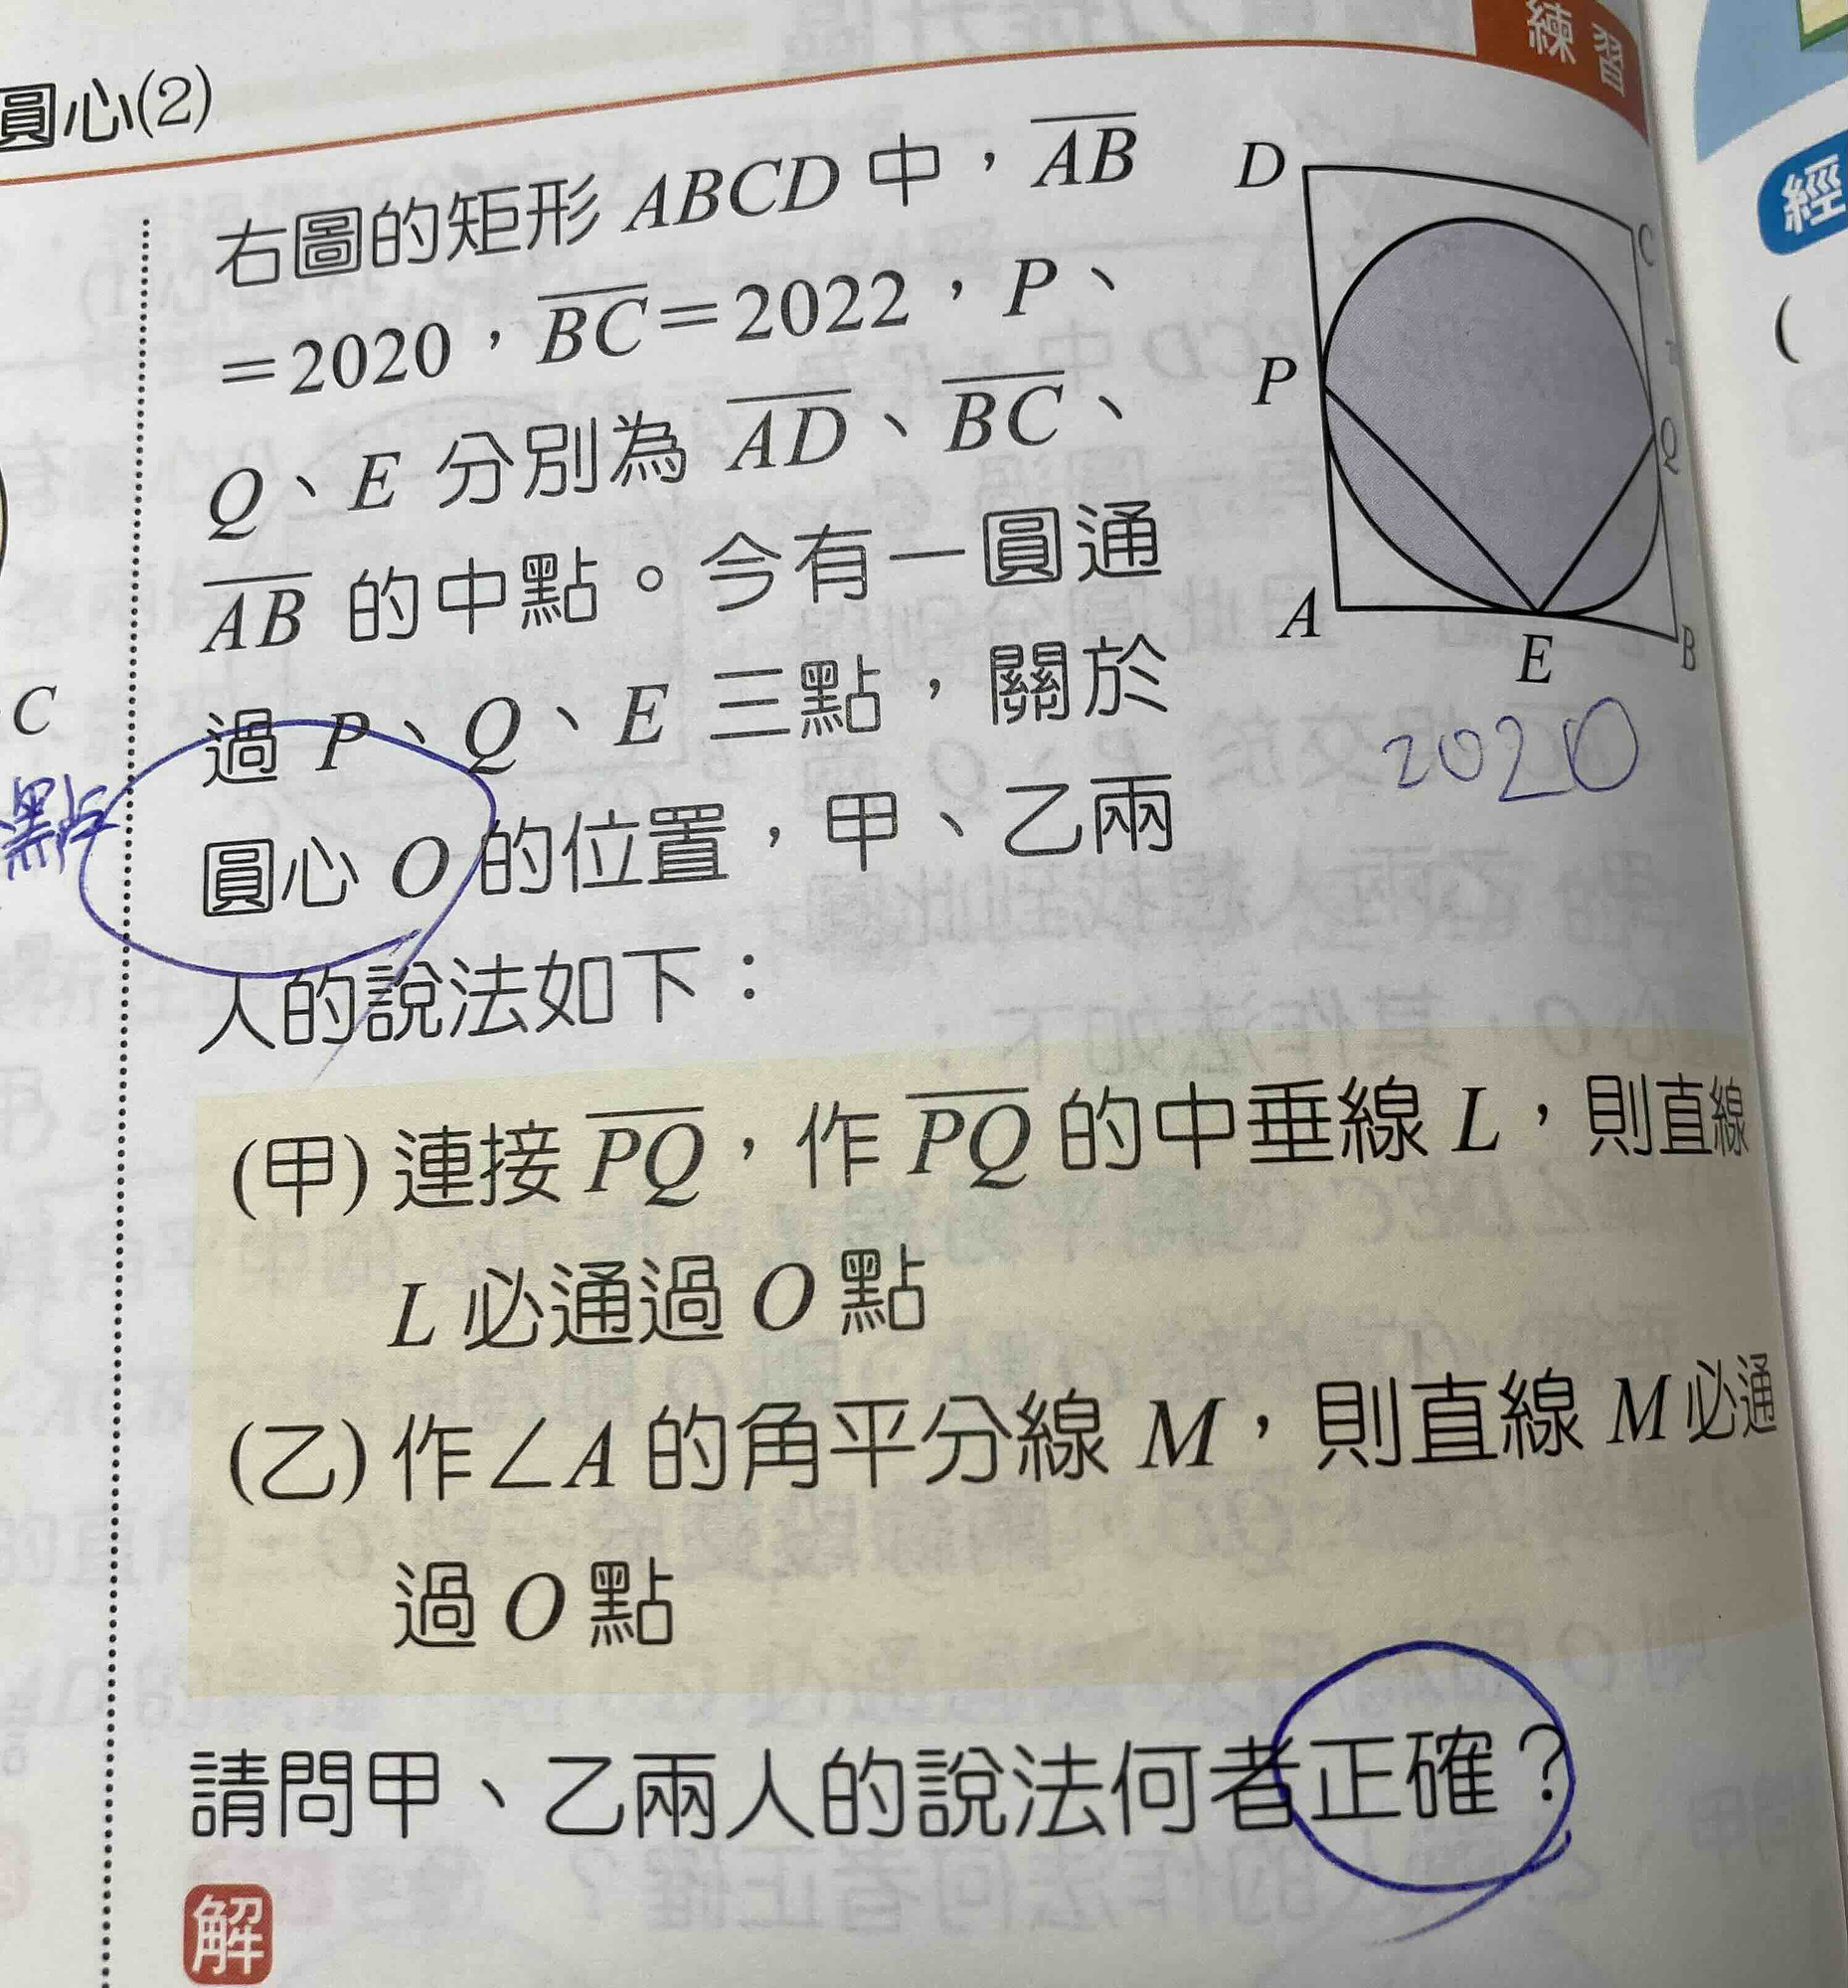 練習
圓心(2)
經
(
右圖的矩形 ABCD 中，AB
=2020，BC=2022，P、
Q、E 分別為 AD、BC、
AB 的中點。今有一圓通
過 P、Q、E 三點，關於
圓心 O 的位置，甲、乙兩
人的說法如下：
D
C
P
Q
A
E
B
2020
C
點
(甲) 連接 PQ，作 PQ 的中垂線 L，則直線
L 必通過 O 點
(乙) 作∠A 的角平分線 M，則直線 M 必通
過 O 點
請問甲、乙兩人的說法何者正確？
解